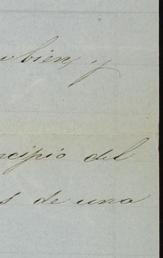 bien, y
cipio del
s de una